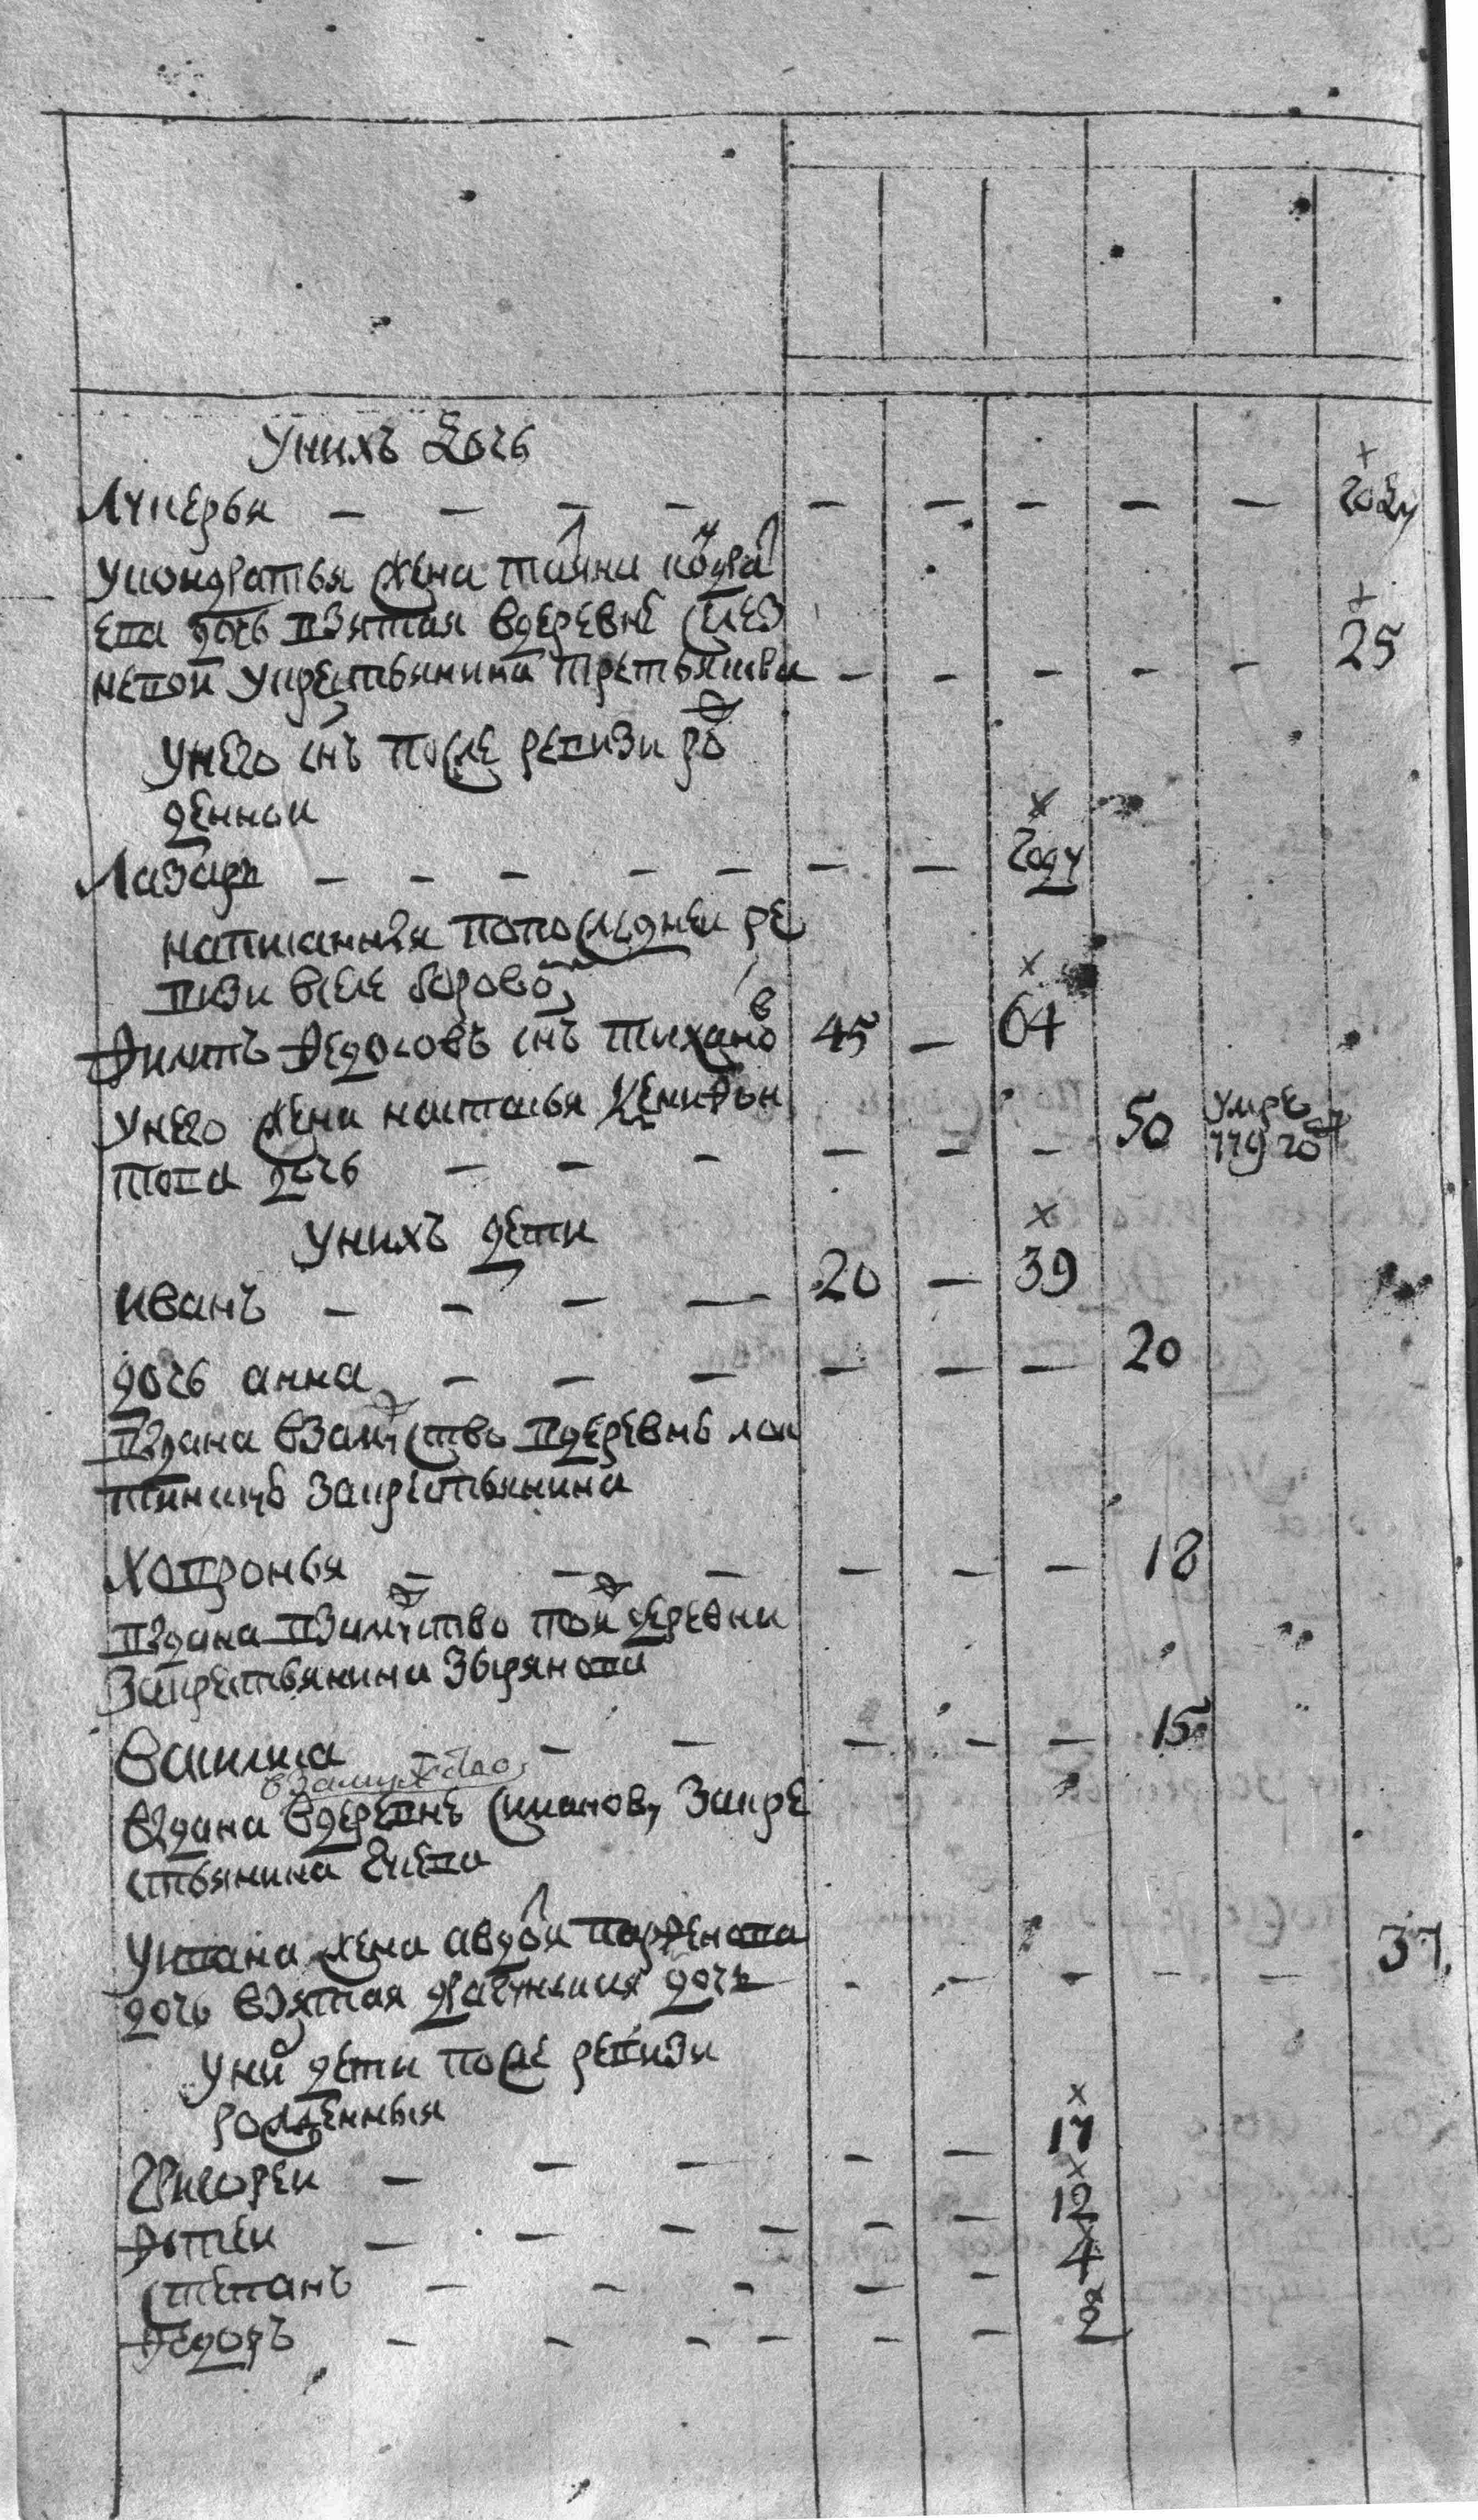 У нихъ дочь
Лукерья — — — — — — — — — году
У кондратья жена татьяна кондра
ева дочь взятая в деревне селез
невой у крестьянина третьякова — — — — — 25
У него снъ после ревизи ро
жденнои
Лазарь — — — — — — — году
написанныя по последнеи ре
визи в селе боровом
Филипъ Федосовъ снъ тихановъ 45 — 64
У него жена наталья
това дочь — — — — — — 50 умре 779 году
У нихъ дети
Иванъ — — — — 20 — 39
дочь анна — — — — — — 20
выдана в замужство в деревне
за крестьянина
Ховронья — — — — — — 18
выдана в замужство тои ж деревни
за крестьянина Зырянова
Василиса — — — — — — 15
в замужство
выдана в деревне за кре
стьянина
У Ивана жена авдотья парфенова
дочь взятая дочь — — — — — 37
У них дети после ревизи
рожденныя
Григореи — — — — — 17
Фотеи — — — — — — 12
Степанъ — — — — — 4
Федоръ — — — — — — 2